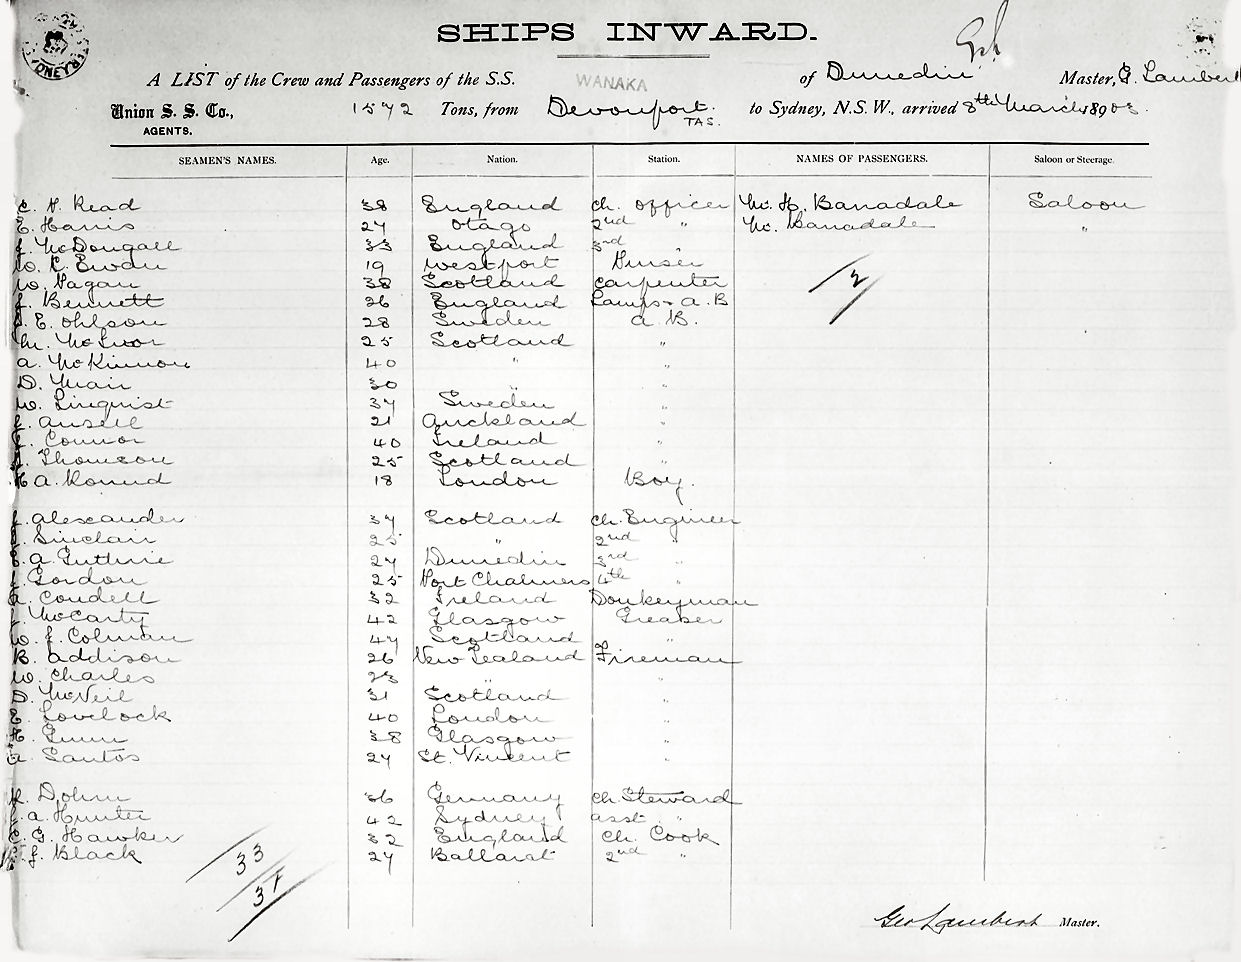 SHIPS INWARD.
A LIST of the Crew and Passengers of the S.S. WANAKA of Dunedin Master, G. Lambert
Union S. S. Co., AGENTS. 1572 Tons, from Devonport TAS. to Sydney, N.S.W., arrived 8th March 1890
SEAMEN'S NAMES. Age. Nation. Station. NAMES OF PASSENGERS. Saloon or Steerage.
Read 38 England ch. officer Mr. H. Banadale Saloon
E. Harris 27 Otago 2nd " Mr. Banadale "
J. McDougall 33 England 3rd "
W. Ewan 19 Westport Purser
W. Pagan 38 Scotland Carpenter 2
J. Bennett 26 England Lamps & A.B
E. Ohlson 28 Sweden A.B.
M. McIvor 25 Scotland "
A. McKinnon 40 " "
D. Mair 30 " "
W. Linqvist 37 Sweden "
J. Ansell 21 Auckland "
Connor 40 Ireland "
Thomson 25 Scotland "
A. Round 18 London Boy.
J. Alexander 37 Scotland ch. Engineer
Sinclair 25 " 2nd "
A. Guthrie 27 Dunedin 3rd "
J. Gordon 25 Port Chalmers 4th "
Condell 32 Ireland Donkeyman
McCarty 42 Glasgow Greaser
W. J. Colman 47 Scotland "
B. Addison 26 New Zealand Fireman
W. Charles 23 " "
D. McNeil 31 Scotland "
E. Lovelock 40 London "
H. Gunn 38 Glasgow "
A. Santos 27 St. Vincent "
Dohrn 36 Germany ch. Steward
A. Hunter 42 Sydney asst. "
G. Hawker 32 England ch. Cook
J. Black 27 Ballarat 2nd "
33
31
Geo Lambert Master.